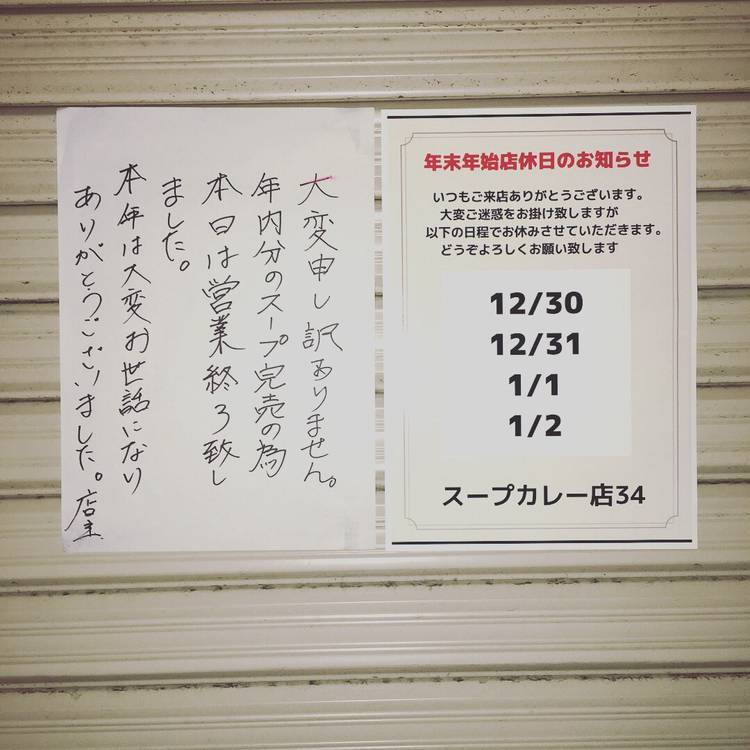 大変申し訳ありません。
年内分のスープ完売の為
本日は営業終了致し
ました。
本年は大変お世話になり
ありがとうございました。店主
年末年始店休日のお知らせ
いつもご来店ありがとうございます。
大変ご迷惑をお掛け致しますが
以下の日程でお休みさせていただきます。
どうぞよろしくお願い致します
12/30
12/31
1/1
1/2
スープカレー店34